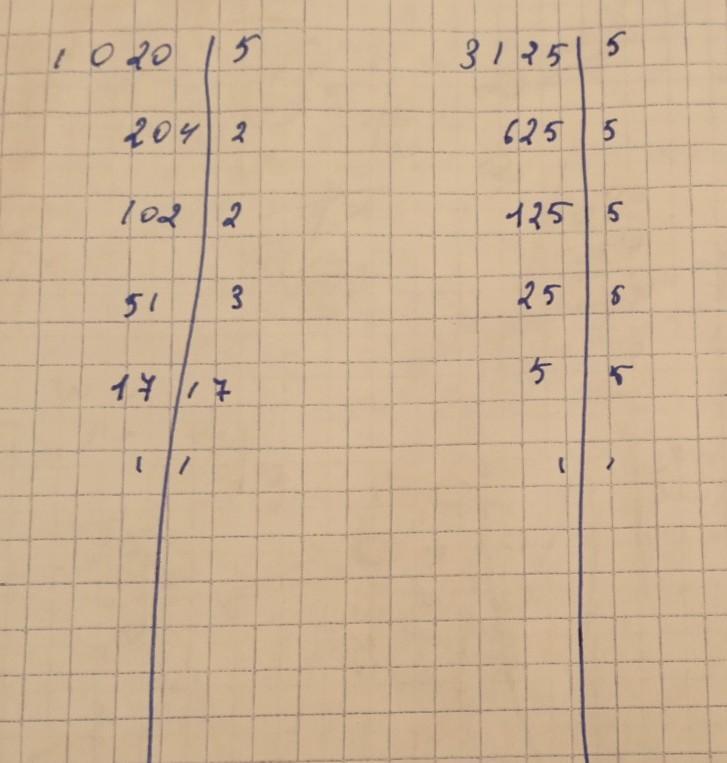 1020 | 5
204 | 2
102 | 2
51 | 3
17 | 17
1 | 1
3125 | 5
625 | 5
125 | 5
25 | 5
5 | 5
1 | 1